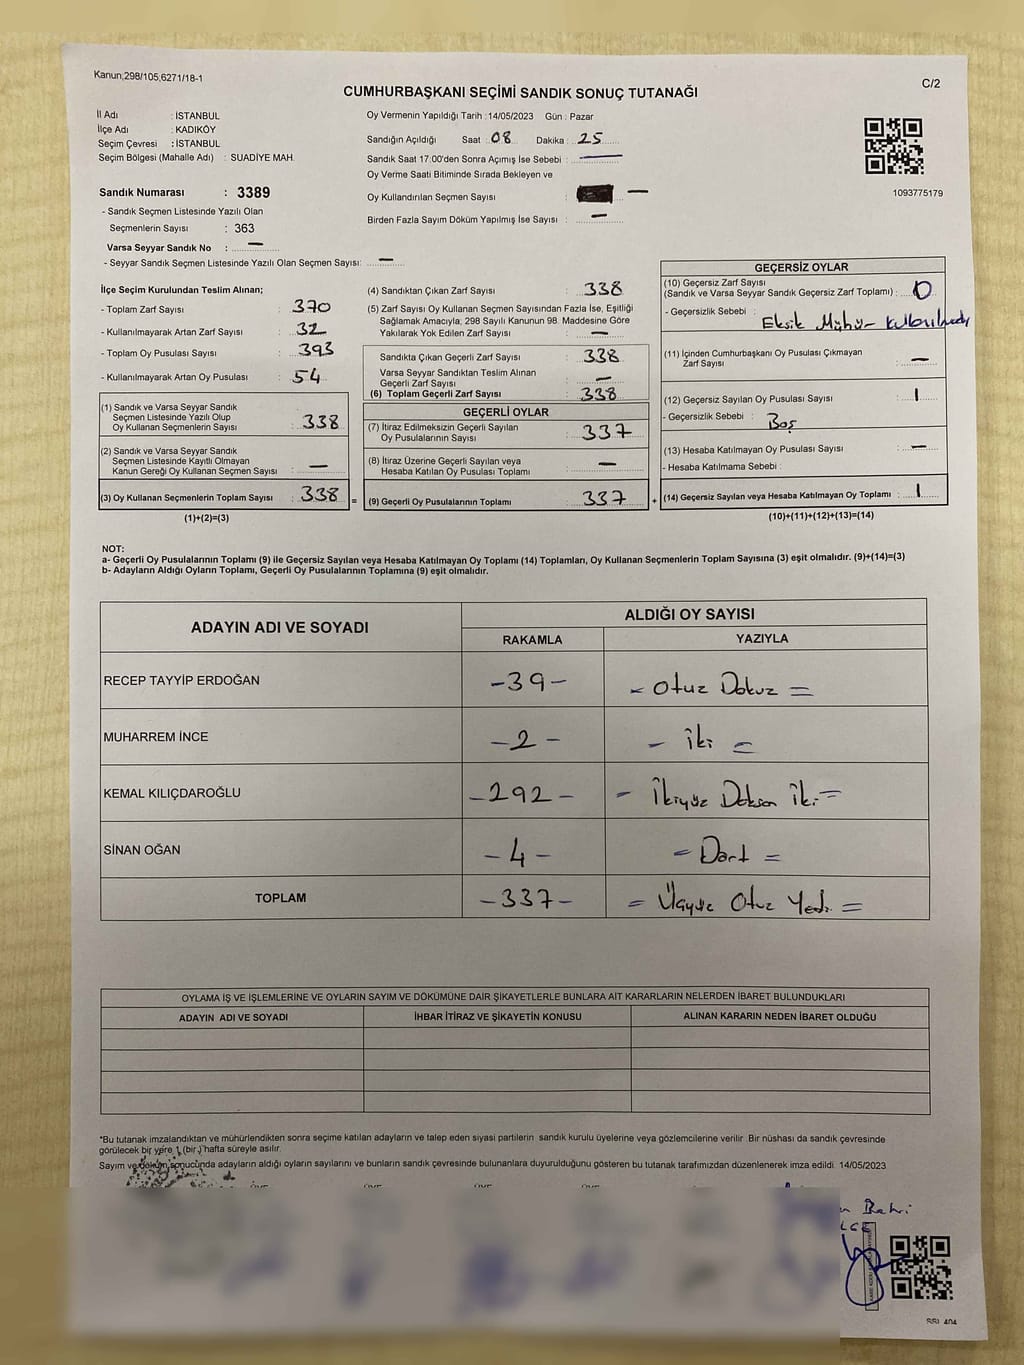 Kanun,298/105,6271/18-1
C/2
CUMHURBAŞKANI SEÇİMİ SANDIK SONUÇ TUTANAĞI
İl Adı : İSTANBUL
İlçe Adı : KADIKÖY
Seçim Çevresi : İSTANBUL
Seçim Bölgesi (Mahalle Adı) : SUADİYE MAH.
Oy Vermenin Yapıldığı Tarih :14/05/2023 Gün : Pazar
Sandığın Açıldığı Saat : 08 Dakika : 25
Sandık Saat 17:00'den Sonra Açımış İse Sebebi : —
Oy Verme Saati Bitiminde Sırada Bekleyen ve
Oy Kullandırılan Seçmen Sayısı : —
Birden Fazla Sayım Döküm Yapılmış İse Sayısı : —
1093775179
Sandık Numarası : 3389
- Sandık Seçmen Listesinde Yazılı Olan
Seçmenlerin Sayısı : 363
Varsa Seyyar Sandık No : —
- Seyyar Sandık Seçmen Listesinde Yazılı Olan Seçmen Sayısı: —
İlçe Seçim Kurulundan Teslim Alınan;
- Toplam Zarf Sayısı : 370
- Kullanılmayarak Artan Zarf Sayısı : 32
- Toplam Oy Pusulası Sayısı : 393
- Kullanılmayarak Artan Oy Pusulası : 54
(1) Sandık ve Varsa Seyyar Sandık
Seçmen Listesinde Yazılı Olup
Oy Kullanan Seçmenlerin Sayısı : 338
(2) Sandık ve Varsa Seyyar Sandık
Seçmen Listesinde Kayıtlı Olmayan
Kanun Gereği Oy Kullanan Seçmen Sayısı : —
(3) Oy Kullanan Seçmenlerin Toplam Sayısı : 338 =
(1)+(2)=(3)
(4) Sandıktan Çıkan Zarf Sayısı : 338
(5) Zarf Sayısı Oy Kullanan Seçmen Sayısından Fazla İse, Eşitliği
Sağlamak Amacıyla, 298 Sayılı Kanunun 98. Maddesine Göre
Yakılarak Yok Edilen Zarf Sayısı : —
Sandıkta Çıkan Geçerli Zarf Sayısı : 338
Varsa Seyyar Sandıktan Teslim Alınan
Geçerli Zarf Sayısı : —
(6) Toplam Geçerli Zarf Sayısı : 338
GEÇERLİ OYLAR
(7) İtiraz Edilmeksizin Geçerli Sayılan
Oy Pusulalarının Sayısı : 337
(8) İtiraz Üzerine Geçerli Sayılan veya
Hesaba Katılan Oy Pusulası Toplamı : —
(9) Geçerli Oy Pusulalarının Toplamı : 337 +
GEÇERSİZ OYLAR
(10) Geçersiz Zarf Sayısı
(Sandık ve Varsa Seyyar Sandık Geçersiz Zarf Toplamı) : 0
- Geçersizlik Sebebi : Eksik Mühür kullanılmadı
(11) İçinden Cumhurbaşkanı Oy Pusulası Çıkmayan
Zarf Sayısı : —
(12) Geçersiz Sayılan Oy Pusulası Sayısı : 1
- Geçersizlik Sebebi : Boş
(13) Hesaba Katılmayan Oy Pusulası Sayısı : —
- Hesaba Katılmama Sebebi :
(14) Geçersiz Sayılan veya Hesaba Katılmayan Oy Toplamı : 1
(10)+(11)+(12)+(13)=(14)
NOT:
a- Geçerli Oy Pusulalarının Toplamı (9) ile Geçersiz Sayılan veya Hesaba Katılmayan Oy Toplamı (14) Toplamları, Oy Kullanan Seçmenlerin Toplam Sayısına (3) eşit olmalıdır. (9)+(14)=(3)
b- Adayların Aldığı Oyların Toplamı, Geçerli Oy Pusulalarının Toplamına (9) eşit olmalıdır.
ADAYIN ADI VE SOYADI
ALDIĞI OY SAYISI
RAKAMLA YAZIYLA
RECEP TAYYİP ERDOĞAN -39- - Otuz Dokuz =
MUHARREM İNCE -2- - İki =
KEMAL KILIÇDAROĞLU -292- - İkiyüz Doksan İki =
SİNAN OĞAN -4- = Dört =
TOPLAM -337- = Üçyüz Otuz Yedi =
OYLAMA İŞ VE İŞLEMLERİNE VE OYLARIN SAYIM VE DÖKÜMÜNE DAİR ŞİKAYETLERLE BUNLARA AİT KARARLARIN NELERDEN İBARET BULUNDUKLARI
ADAYIN ADI VE SOYADI İHBAR İTİRAZ VE ŞİKAYETİN KONUSU ALINAN KARARIN NEDEN İBARET OLDUĞU
*Bu tutanak imzalandıktan ve mühürlendikten sonra seçime katılan adayların ve talep eden siyasi partilerin sandık kurulu üyelerine veya gözlemcilerine verilir. Bir nüshası da sandık çevresinde
görülecek bir yere 1 (bir) hafta süreyle asılır.
Sayım ve döküm sonucunda adayların aldığı oyların sayılarını ve bunların sandık çevresinde bulunanlara duyurulduğunu gösteren bu tutanak tarafımızdan düzenlenerek imza edildi. 14/05/2023
Bahri